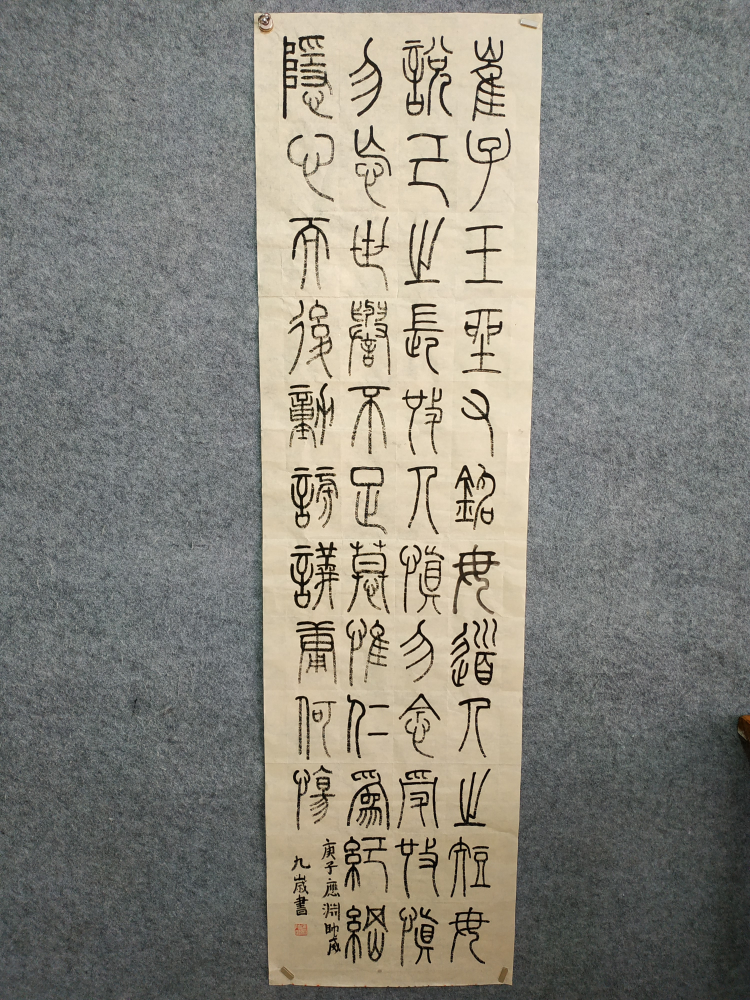 崔子玉坐右銘毋道人之短毋
說己之長施人慎勿念受施慎
勿忘世譽不足慕惟仁為紀綱
隱心而後動謗議庸何傷
庚子應淵
九歲書